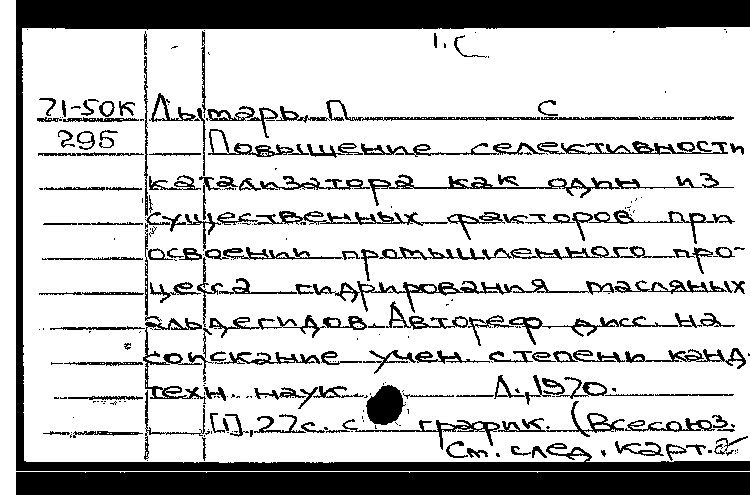 1.С
71-50К Лытарь, П С
295 Повышение селективности
катализатора как один из
существенных факторов при
освоении промышленного про-
цесса гидрирования масляных
альдегидов. Автореф дисс. на
соискание учен. степени канд.
техн. наук Л., 1970.
[1], 27с. с график. (Всесоюз.
См. след. карт. 2